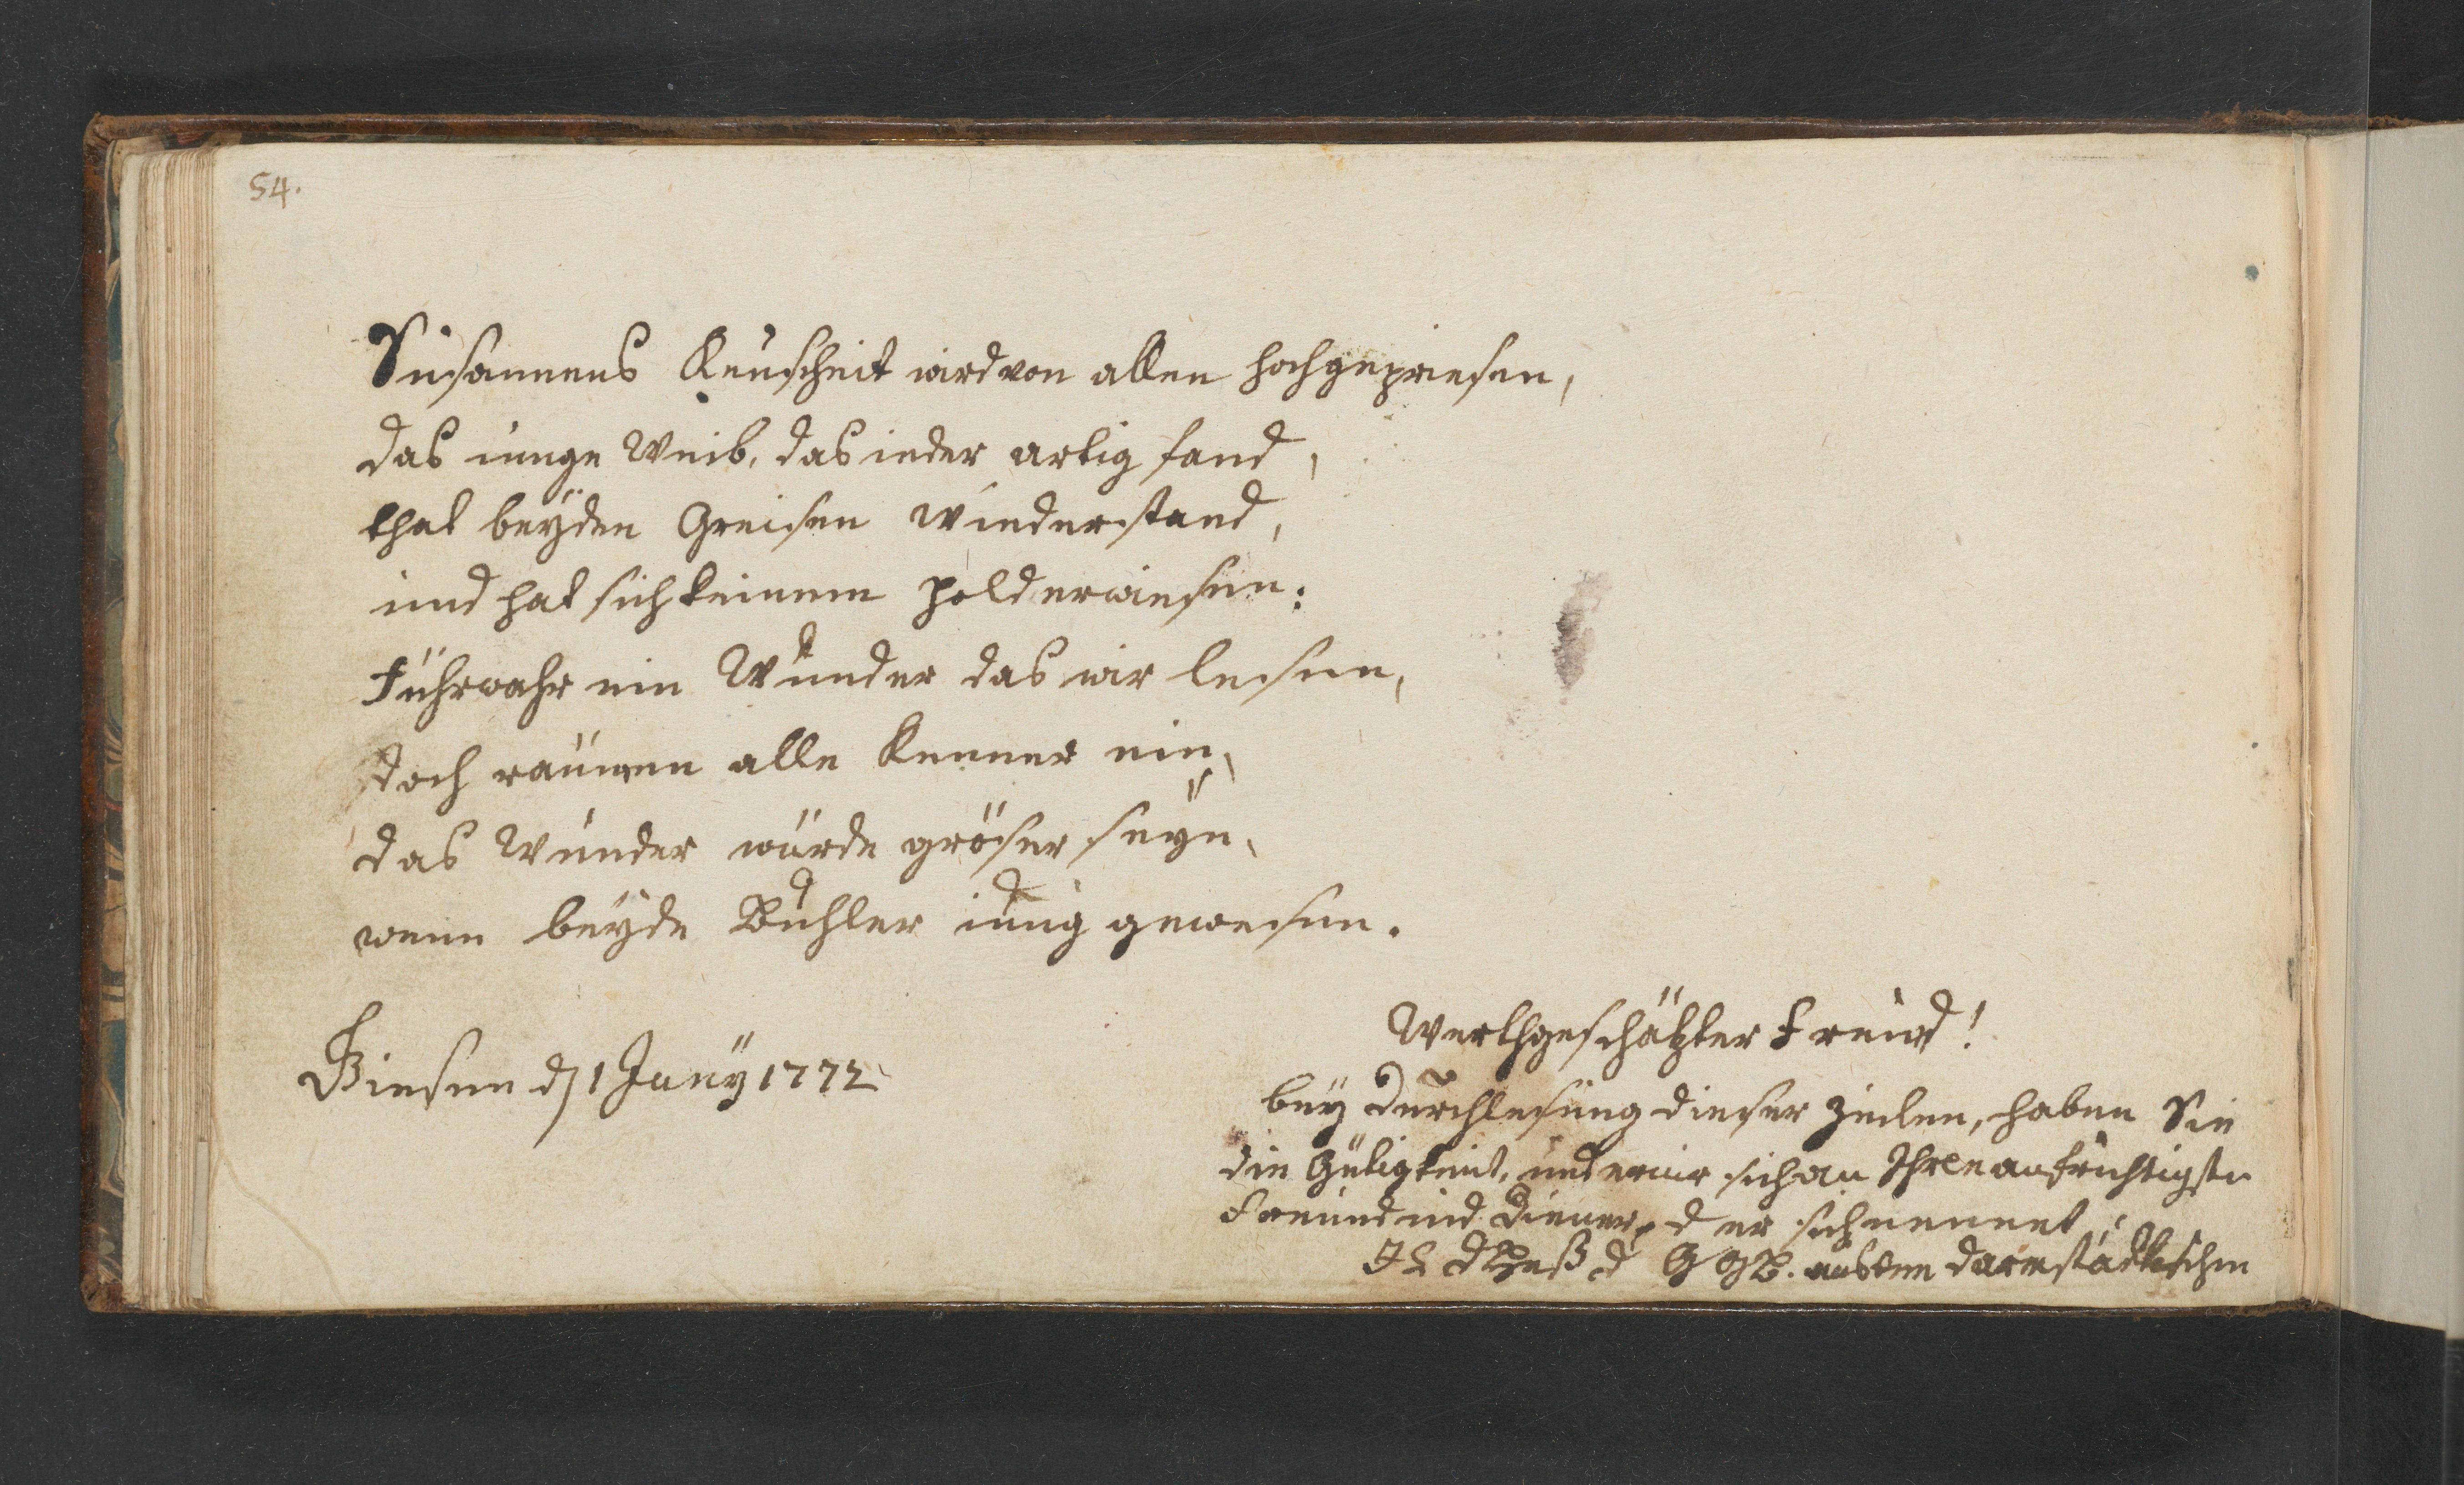 54.
Susannens Keuscheit wird von allen hochgepriesen,
das iunge Weib, das ieder artig fand,
that beyden Greisen wiederstand,
und hat sich keinem hold erwiesen:
Führwahr ein Wunder das wir lesen,
doch räumen alle Kenner ein,
das Wunder würde gröser seyn,
wenn beyde Buhler iung gewesen.
Giesen d 1 Jany 1772
Werthgeschätzter Freund!
bey Durchlesung dieser Zeilen, haben Sie
die Gütigkeit, und sich an Ihren aufrichtigsten
Freund und Diener, der sich nennet
aus dem Darmstädtischen